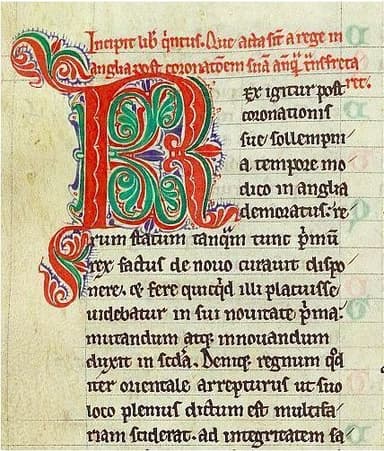 Incipit lib̃ q̃ntus. Que acta sũt a rege in
anglia post coronatõem suã anq̃ t̃nsfreta
ret.
REx igitur post
coronationis
sue sollempni
a tempore mo
dico in anglia
demoratus: re
rum statum tanq̃m tunc p̃mũ
rex factus de nouo curauit dispo
nere. ⁊ fere quicq̃d illi placuisse
uidebatur in sui nouitate p̃ma:
mutandum atq; innouandum
duxit in scd̃a. Deniq; regnum q̃d
iter orientale arrepturus ut suo
loco plenius dictum est multifa
riam sciderat. ad integritatem sa